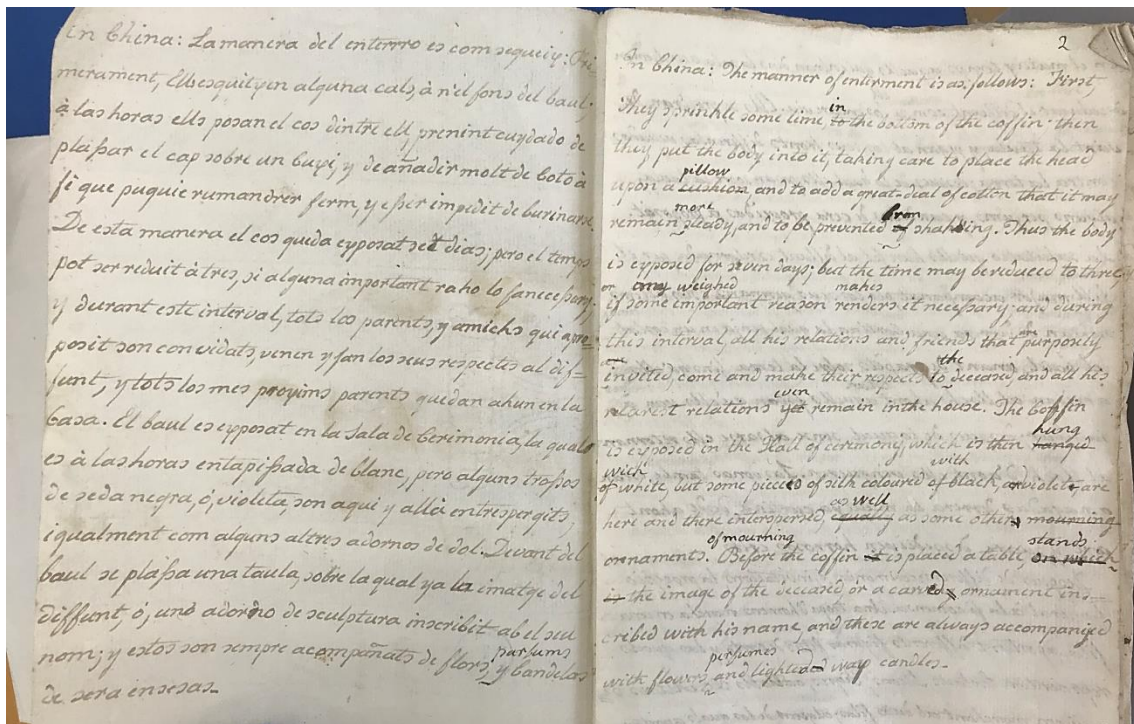 In China: La manera del enterro es com segueix: Pri-
merament, Ells esquitxen alguna cals, à n'el fons del baul;
à las horas ells posan el cos dintre ell, prenint cuydado de
plassar el cap sobre un buxi, y de añadir molt de Cotó à
fi que puguie rumandrer ferm, y esser impedit de burinarse.
De esta manera el cos queda expossat set dias; pero el temps
pot ser reduit à tres, si alguna important raho lo fa necessary
y durant est interval, tots los parents, y amichs qui apro-
posit son convidats, venen y fan los seus respectes al dif-
funt, y tots los mes proxims parents quedan ahun en la
Casa. El baul es expossat en la Sala de Cerimonia, la qual
es à las horas entapissada de blanc, pero alguns trossos
de seda negra, ó, violeta, son aqui y allà entrespergits,
igualment com alguns altres adornos de dol. Devant del
baul se plassa una taula, sobre la qual ya la imatge del
diffunt, ó, uno adorno de sculptura inscribit ab el seu
parfums
nom; y estos son sempre acompañats de flors, y Candelas
de sera ensesas.
2
In China: The manner of enterment is as follows: First,
in
They sprinkle some lime, to the bottom of the coffin then
they put the body into it, taking care to place the head
pillow
upon a cushion, and to add a great dial of cotton that it may
more from
remain steady, and to be prevented of shaking. Thus the body
is exposed for seven days; but the time may be reduced to three,
or any weighed makes
if some important reason renders it necessary, and during
this interval, all his relations and friends that are purposely
the
invited, come and make their respects to deceased, and all his
even
nearest relations yet remain in the house. The Coffin
hung
is exposed in the Hall of ceremony, which is then hanged
with with
of white, but some pieces of silk coloured of black, or violet, are
as well
here and there interspersed, equally as some other mourning
of mourning stands
ornaments. Before the coffin it is placed a table, on which
is the image of the deceased or a carved ornament ins-
cribed with his name, and these are always accompanied
perfumes
with flowers, and lighted wax candles.